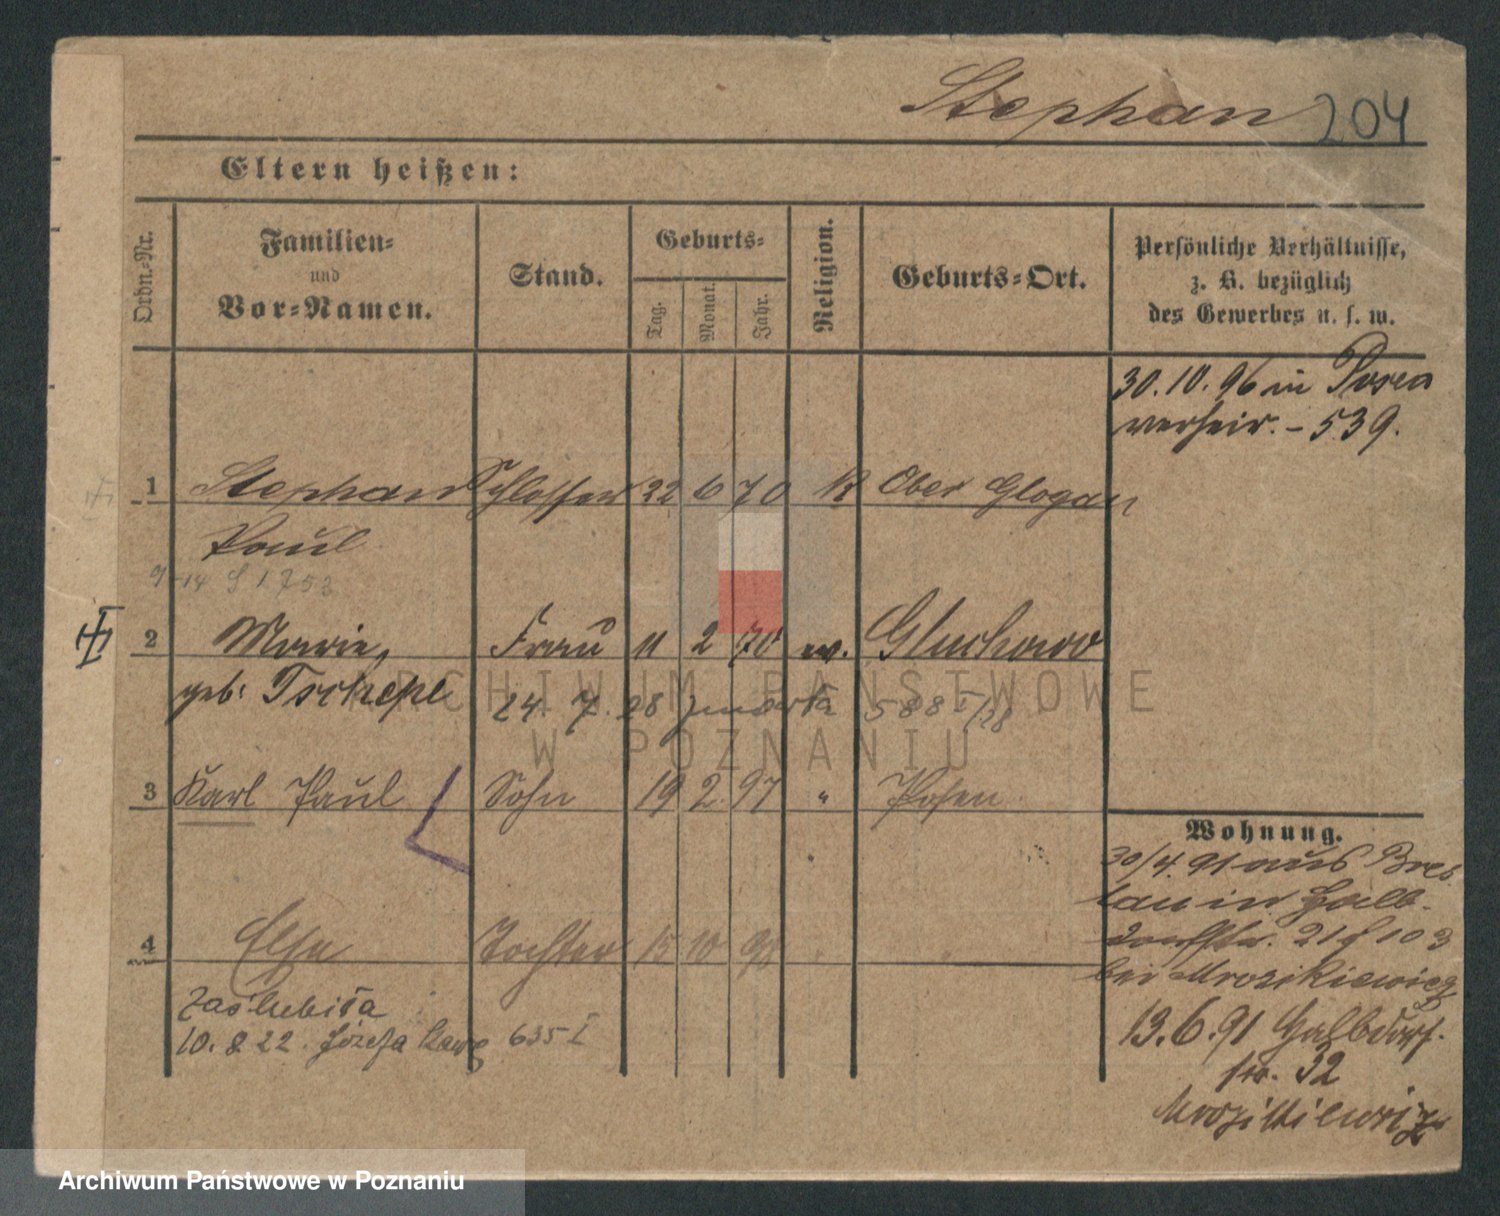 Stephan 204
Eltern heißen:
Ordn.-Nr.
Familien-
und
Vor-Namen.
Stand.
Geburts-
Tag.
Monat.
Jahr.
Religion.
Geburts-Ort.
Persönliche Verhältnisse,
z. B. bezüglich
des Gewerbes u. s. w.
30.10.96 in Posen
verheir. - 539.
1 Stephan Schlosser 22 6 70 K Ober Glogau
Paul
2 Marie, Frau 11 2 70 ev. Gluchowo
geb: Tschepe
24. 7. 28 zmarła 588 I/28
3 Karl Paul Sohn 19 2 97 " Posen
4 Else Tochter 15 10 98 " "
zaślubiła
10. 8 22. Józefa 635 I
Wohnung.
30/4. 91 aus Bres
lau in Halb-
dorfstr. 21
bei Mrozikiewicz
13.6.91 Halbdorf-
str. 32
ARCHIWUM PAŃSTWOWE
W POZNANIU
Archiwum Państwowe w Poznaniu